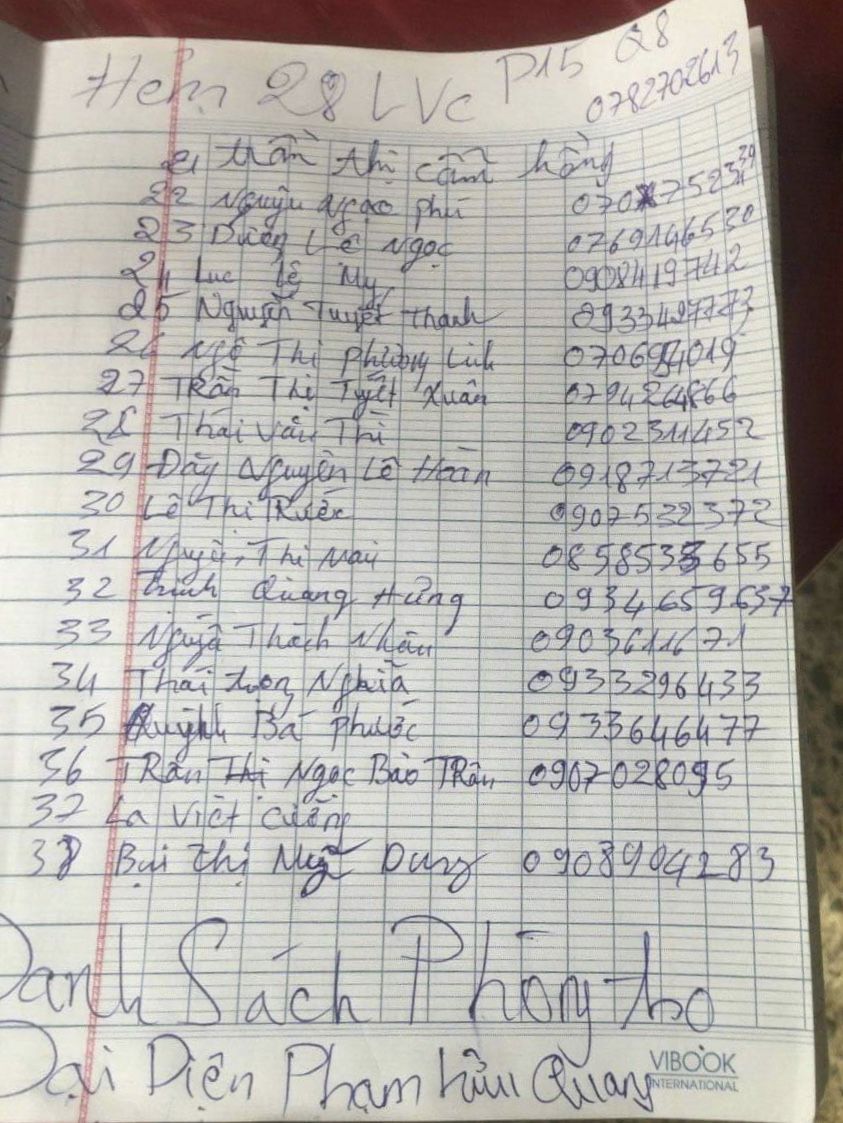 Hẻm 28 LVC P15 Q8
0782702613
21 Trần Thị Cẩm Hồng
22 Nguyễn Ngọc Phú
23 Dương Lê Ngọc 0769146530
24 Luc Lê My 0908419742
25 Nguyễn Tuyết Thanh 0933427773
26 Ngô Thị Phương Linh
27 Trần Thị Tyết Xuân 0794264866
28 Thái Văn Thì 0902311452
29 Đây Nguyên Lê Hoàn 0918713721
30 Lê Thị Rước 0907532372
31 Nguyễn Thị Mai 0858533655
32 Trinh Quang Hưng 0934659637
33 Nguyễn Thách Nhân 0903611671
34 Thái Trọng Nghĩa 0933296433
35 Quỳnh Bá Phước 0933646477
36 Trần Thị Ngọc Bảo Trân 0907028095
37 La Việt Cường
38 Bụi Thị Mỹ Dung 0908904283
Danh Sách Phòng trọ
Đại Diện Phạm Hữu Quang
VIBOOK
INTERNATIONAL